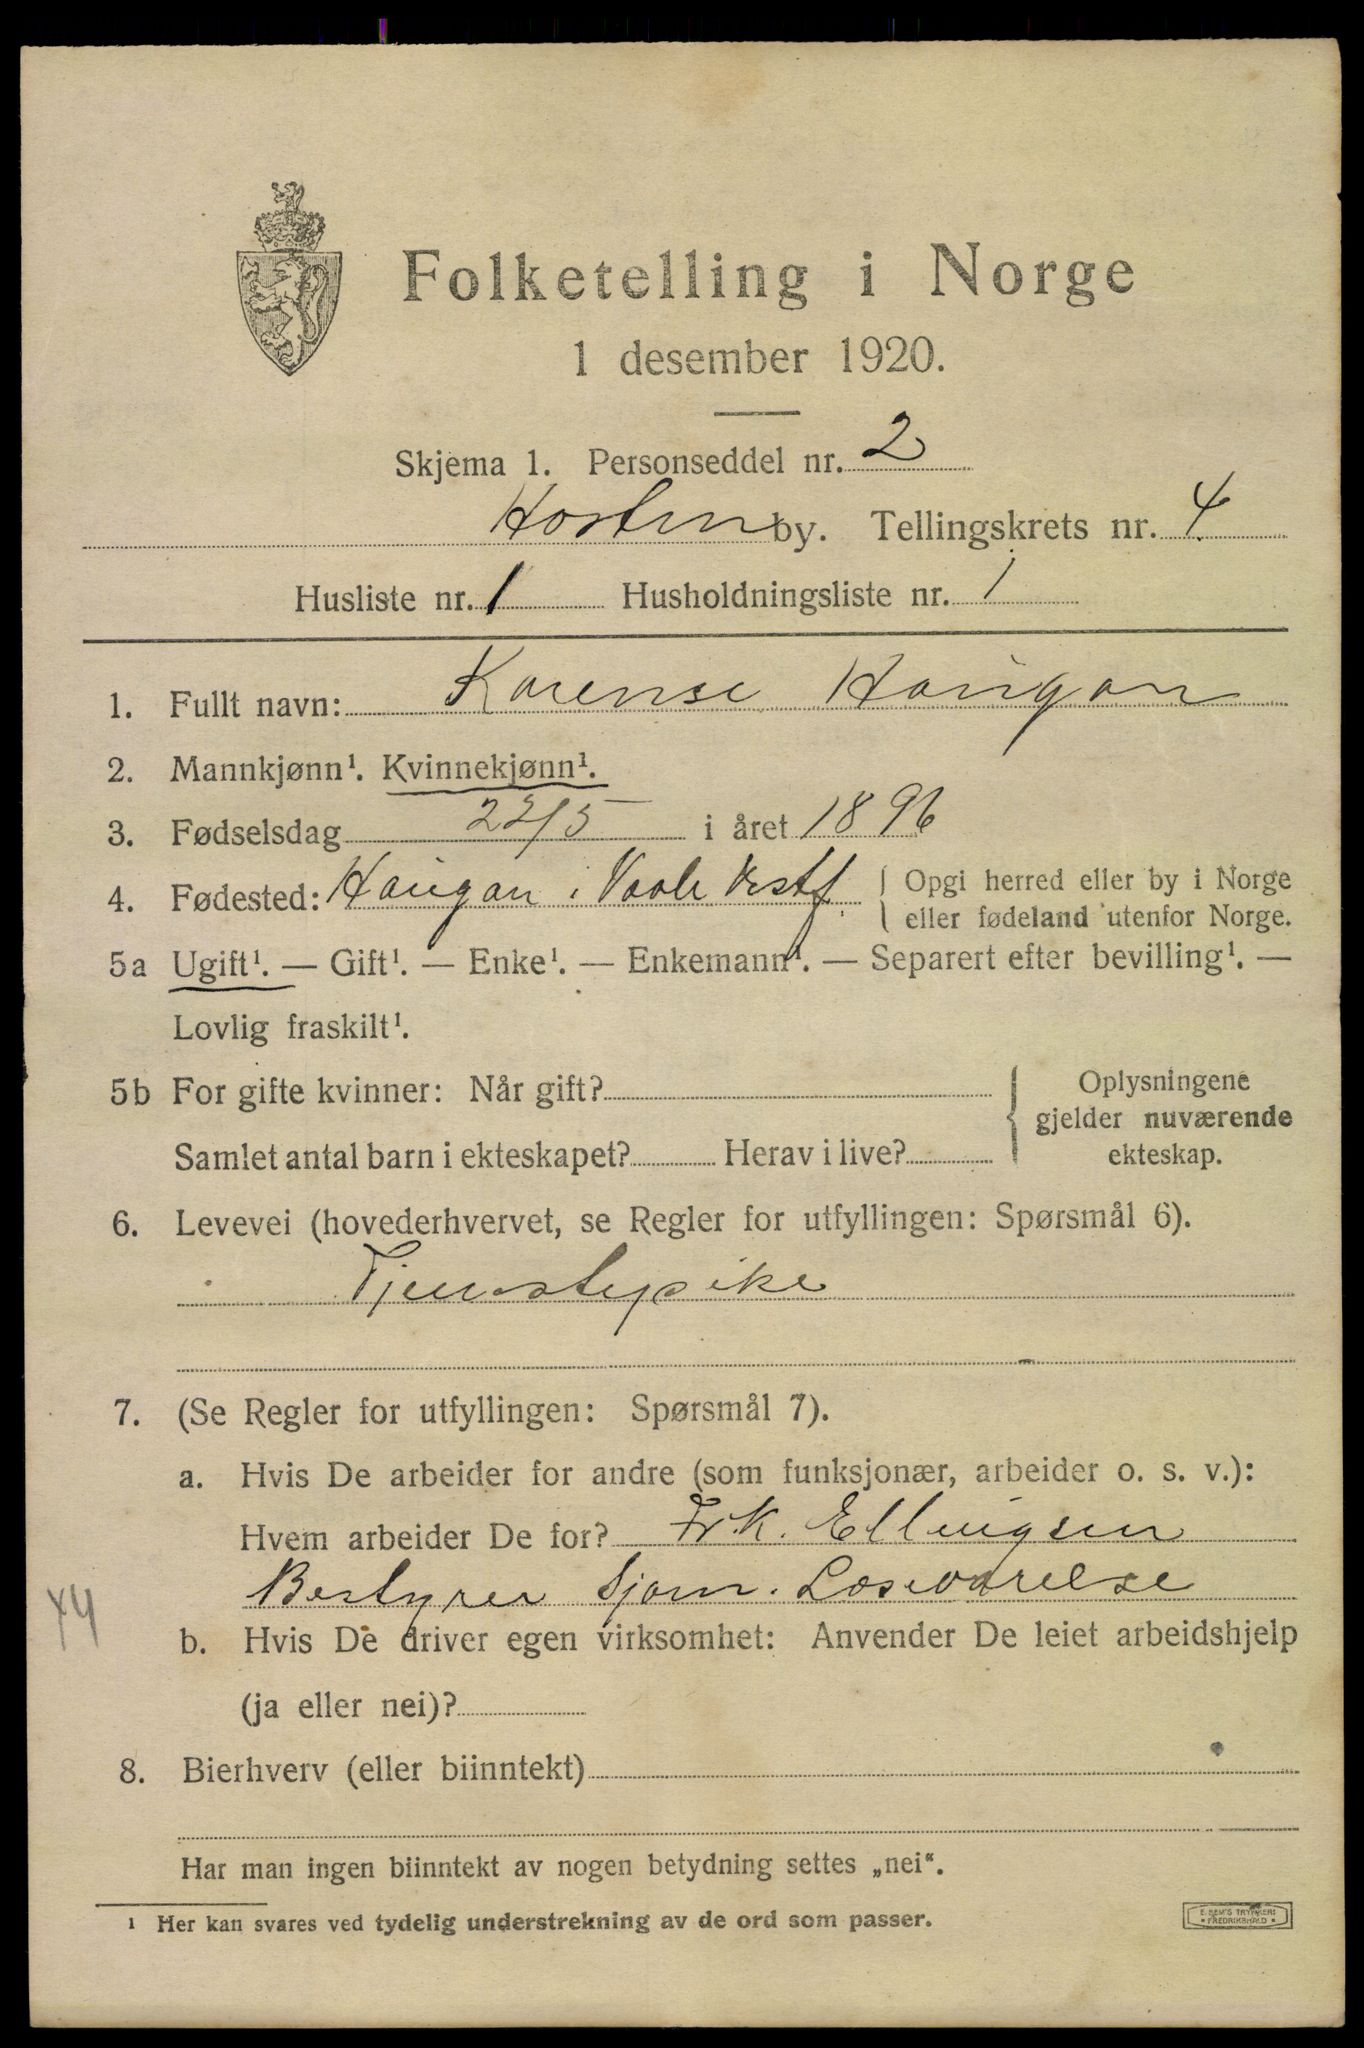 Folketelling i Norge
1 desember 1920.
Skjema 1. Personseddel nr. 2
Horten by. Tellingskrets nr. 4
Husliste nr. 1 Husholdningsliste nr. 1
1. Fullt navn: Karense Haugan
2. Mannkjønn¹. Kvinnekjønn¹.
3. Fødselsdag 22/5 i året 1896
4. Fødested: Haugan i Vaale Vestf. Opgi herred eller by i Norge
eller fødeland utenfor Norge.
5a Ugift¹. — Gift¹. — Enke¹. — Enkemann¹. — Separert efter bevilling¹. —
Lovlig fraskilt¹.
5b For gifte kvinner: Når gift? Oplysningene
gjelder nuværende
Samlet antal barn i ekteskapet? Herav i live? ekteskap.
6. Levevei (hovederhvervet, se Regler for utfyllingen: Spørsmål 6).
Tjenestepike
7. (Se Regler for utfyllingen: Spørsmål 7).
a. Hvis De arbeider for andre (som funksjonær, arbeider o. s. v.):
Hvem arbeider De for? Frk. Ellingsen
Bestyrer Sjøm. Læseværelse
44
b. Hvis De driver egen virksomhet: Anvender De leiet arbeidshjelp
(ja eller nei)?
8. Bierhverv (eller biinntekt)
Har man ingen biinntekt av nogen betydning settes „nei“.
¹ Her kan svares ved tydelig understrekning av de ord som passer.
E. SEM'S TRYKKERI
FREDRIKSHALD